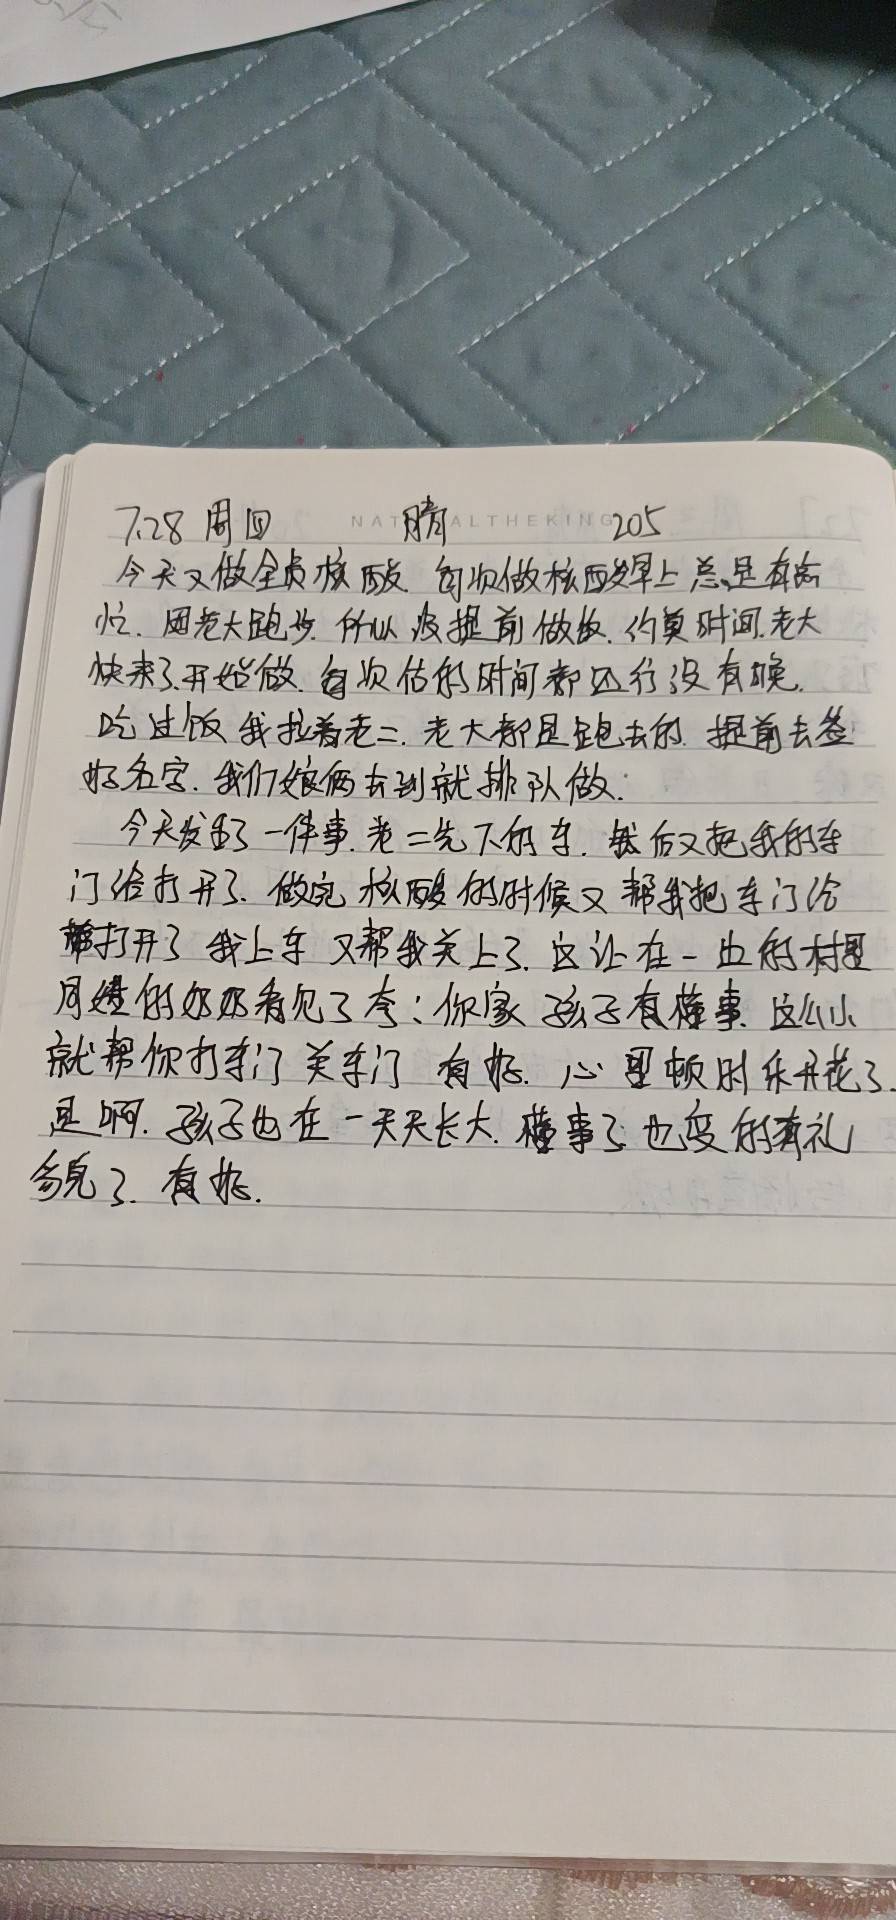 7.28 周四 晴 205
NATURALTHEKING
今天又做全员核酸. 每次做核酸早上总是有点
忙. 因老大跑步. 所以没提前做饭. 约莫时间. 老大
快来了. 开始做. 每次估的时间都还行没有晚.
吃过饭 我拉着老二. 老大都是跑去的. 提前去签
好名字. 我们娘俩去到就排队做.
今天发生了一件事. 老二先下的车. 然后又把我的车
门给打开了. 做完核酸的时候又帮我把车门给
打开了 我上车 又帮我关上了. 这让在一边的村里
的奶奶看见了夸: 你家孩子真懂事. 这么小
就帮你打车门 关车门 真好. 心里顿时乐开花了.
是啊. 孩子也在一天天长大. 懂事了 也变的有礼
貌了. 真好.